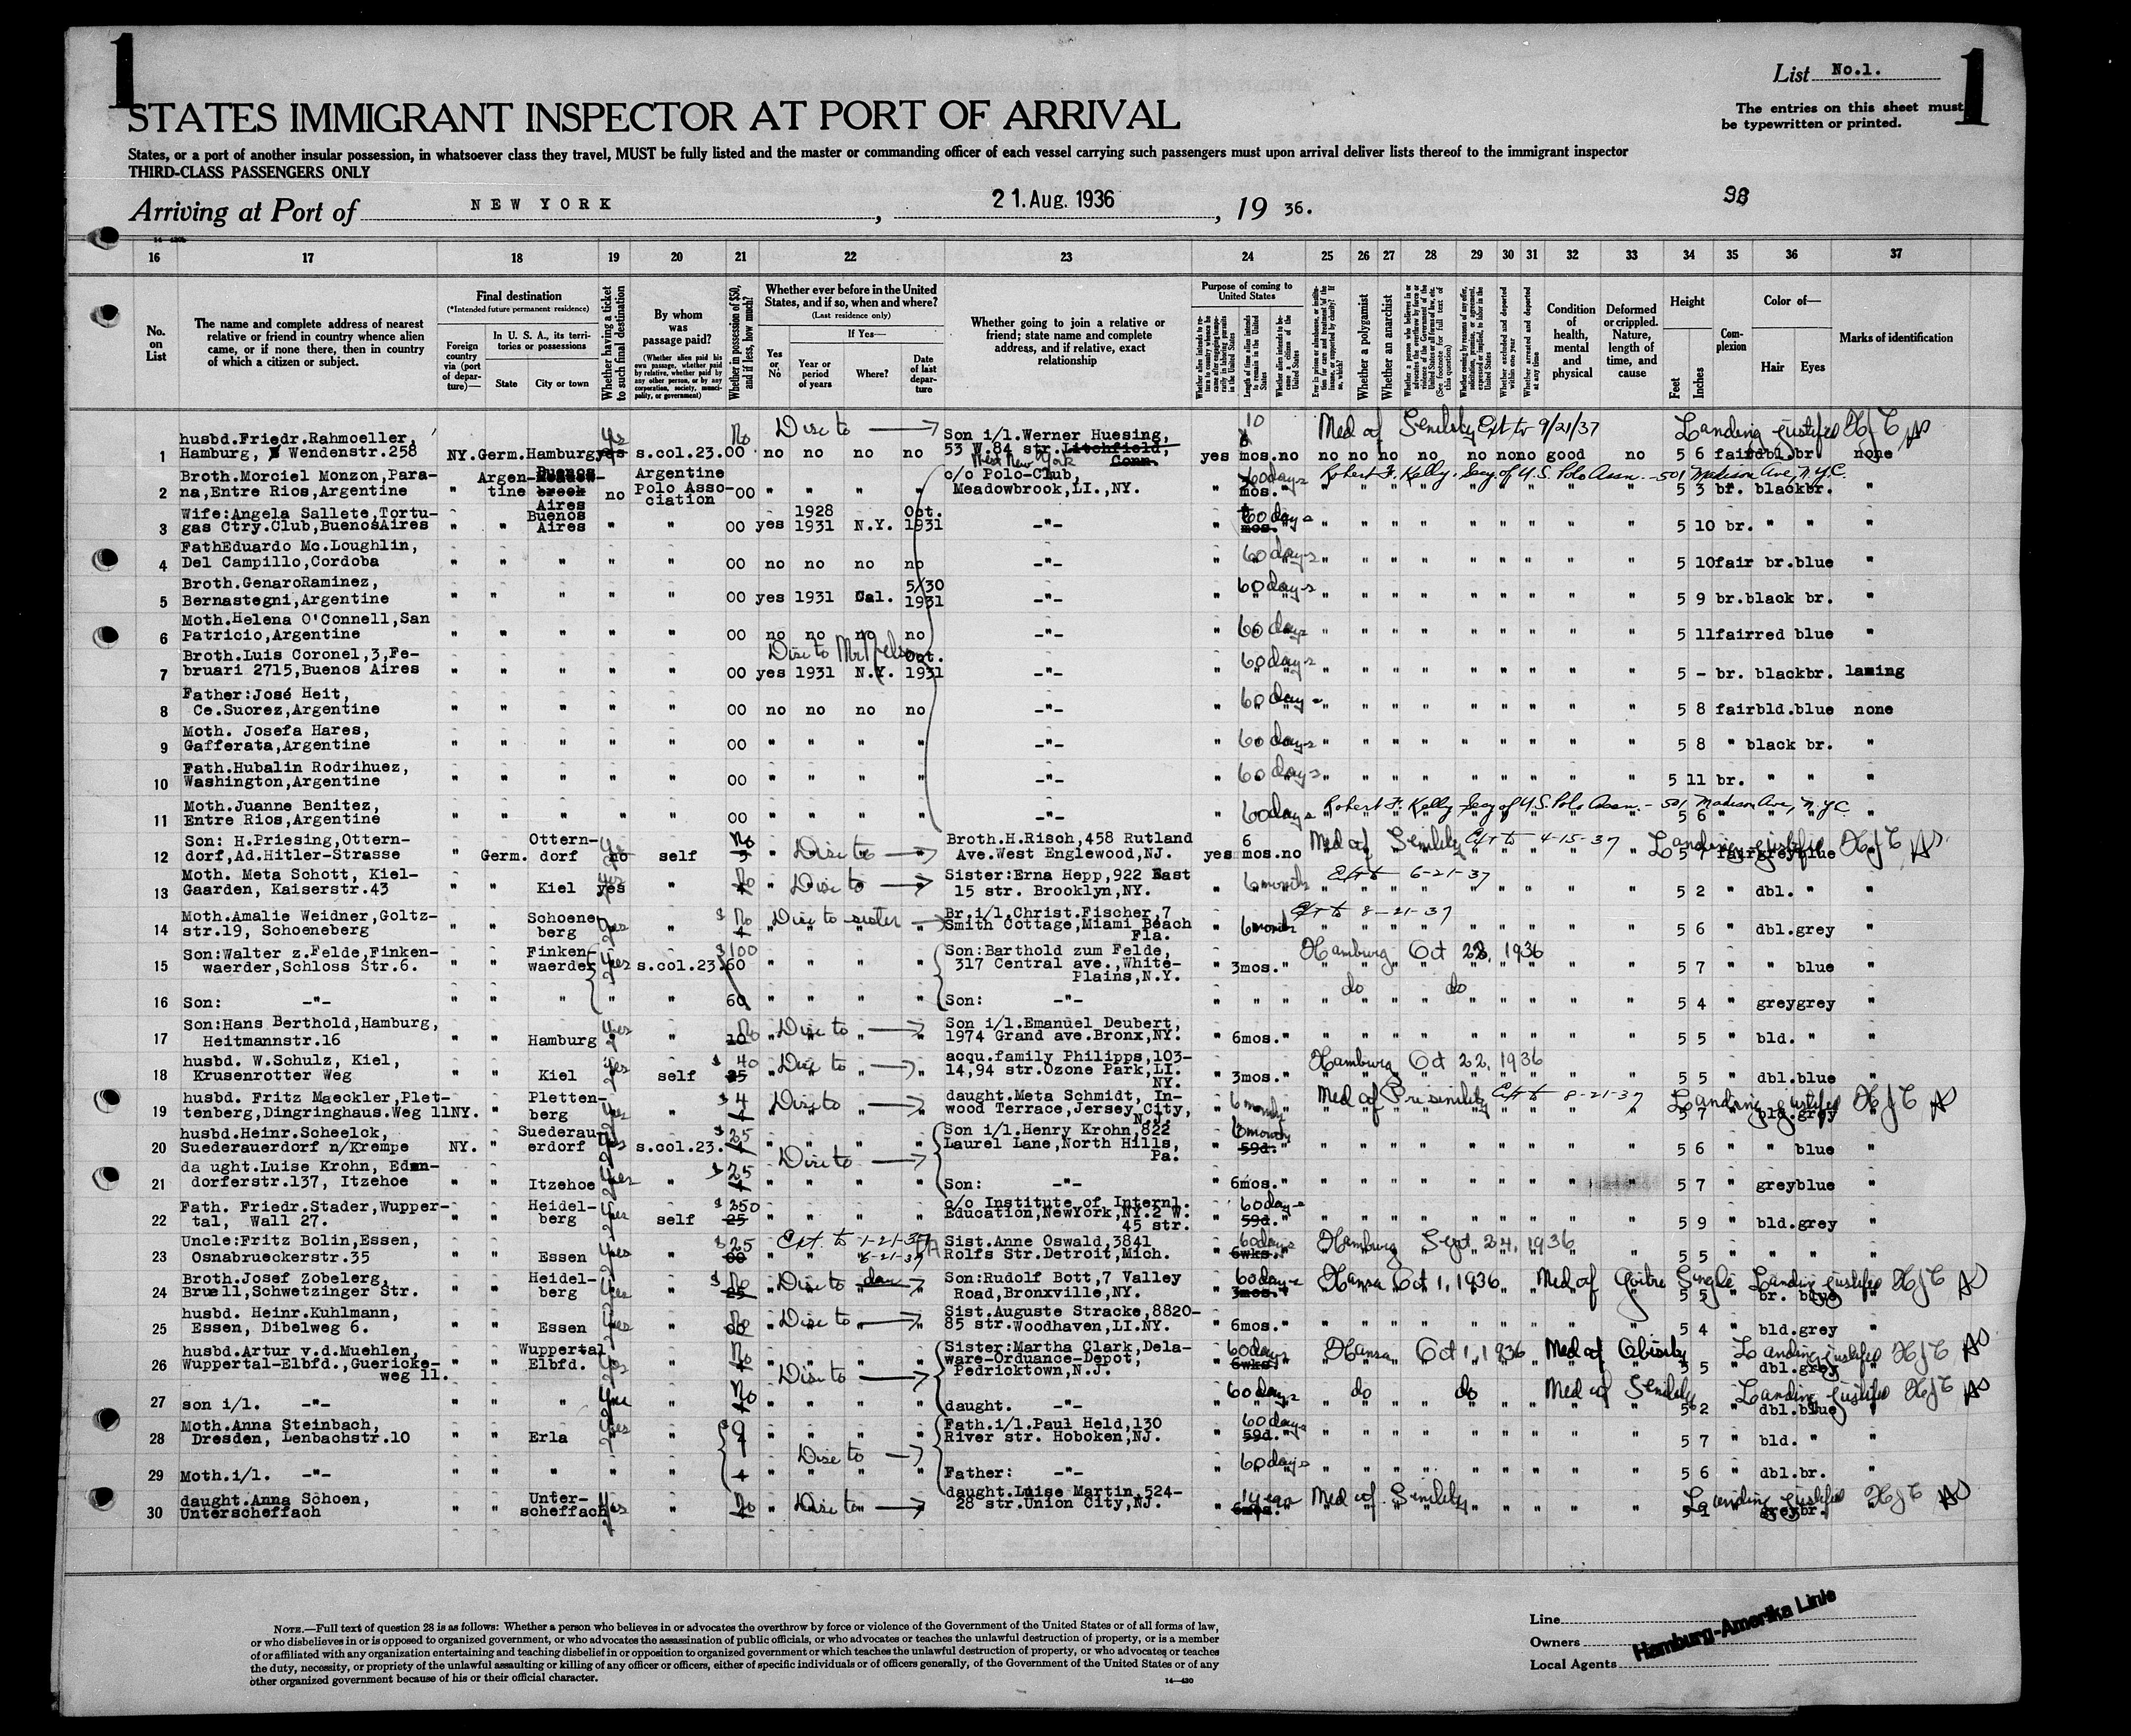 1
1
List No.1.
STATES IMMIGRANT INSPECTOR AT PORT OF ARRIVAL
The entries on this sheet must
be typewritten or printed.
States, or a port of another insular possession, in whatsoever class they travel, MUST be fully listed and the master or commanding officer of each vessel carrying such passengers must upon arrival deliver lists thereof to the immigrant inspector
THIRD-CLASS PASSENGERS ONLY
Arriving at Port of NEW YORK , 21.Aug.1936 , 19 36.
16 17 18 19 20 21 22 23 24 25 26 27 28 29 30 31 32 33 34 35 36 37
No. on List
The name and complete address of nearest relative or friend in country whence alien came, or if none there, then in country of which a citizen or subject.
Final destination
(*Intended future permanent residence)
Foreign country via (port of departure)—
In U. S. A., its territories or possessions
State
City or town
Whether having a ticket to such final destination
By whom was passage paid?
(Whether alien paid his own passage, whether paid by relative, whether paid by any other person, or by any corporation, society, municipality, or government)
Whether in possession of $50, and if less, how much?
Whether ever before in the United States, and if so, when and where?
(Last residence only)
Yes or No
If Yes—
Year or period of years
Where?
Date of last departure
Whether going to join a relative or friend; state name and complete address, and if relative, exact relationship
Purpose of coming to United States
Length of time alien intends to remain in the United States
Whether alien intends to become a citizen of the United States
Whether a polygamist
Whether an anarchist
Whether excluded and deported within one year
Whether arrested and deported at any time
Condition of health, mental and physical
Deformed or crippled. Nature, length of time, and cause
Height
Feet
Inches
Complexion
Color of—
Hair
Eyes
Marks of identification
10 Med of Senility Ext to 9/21/37 Landing justified
husbd.Friedr.Rahmoeller, yes No Disc to Son i/l.Werner Huesing,
1 Hamburg, Wendenstr.258 NY. Germ. Hamburg yes s.col.23. 00 no no no no 53 W.84 str. Litchfield, Conn. yes mos. no no no no no no no no good no 5 6 fair dbl. br none
West New York
Broth.Morciel Monzon,Para- Argen- Buenos Argentine c/o Polo-Club, 60 days Robert F. Kelly, Secy of U.S. Polo Assn. - 501 Madison Ave, N.Y.C.
2 na,Entre Rios,Argentine " tine Aires no Polo Asso- 00 " " " " Meadowbrook,LI.,NY. " mos. 5 3 br. black br. "
ciation
Wife:Angela Sallete,Tortu- Buenos 1928 Oct. 60 days
3 gas Ctry.Club,BuenosAires " " Aires " " 00 yes 1931 N.Y. 1931 -"- " mos. 5 10 br. " " "
FathEduardo Mc.Loughlin, 60 days
4 Del Campillo,Cordoba " " " " " 00 no no no no -"- " 5 10 fair br. blue "
Broth.GenaroRaminez, 5/30 60 days
5 Bernastegni,Argentine " " " " " 00 yes 1931 Cal. 1931 -"- " 5 9 br. black br. "
Moth.Helena O'Connell,San 60 days
6 Patricio,Argentine " " " " " 00 no no no no -"- " 5 11 fair red blue "
Broth.Luis Coronel,3,Fe- Disc to Oct. 60 days
7 bruari 2715,Buenos Aires " " " " " 00 yes 1931 N.Y. 1931 -"- " 5 - br. black br. laming
Father:José Heit, 60 days
8 Ce.Suorez,Argentine " " " " " 00 no no no no -"- " 5 8 fair bld. blue none
Moth. Josefa Hares, 60 days
9 Gafferata,Argentine " " " " " 00 " " " " -"- " 5 8 " black br. "
Fath.Hubalin Rodrihuez, 60 days
10 Washington,Argentine " " " " " 00 " " " " -"- " 5 11 br. " " "
Moth.Juanne Benitez, 60 days Robert F. Kelly Secy of U.S. Polo Assn. - 501 Madison Ave, N.Y.C.
11 Entre Rios,Argentine " " " " " 00 " " " " -"- " 5 6 " " " "
Son: H.Priesing,Ottern- Ottern- No Broth.H.Risch,458 Rutland 6 Med of Senility Ext to 4-15-37 Landing justified
12 dorf,Ad.Hitler-Strasse " Germ. dorf no self " Disc to Ave.West Englewood,NJ. yes mos. no 5 7 fair grey blue "
Moth. Meta Schott, Kiel- yes No Sister:Erna Hepp,922 East 6 months Ext to 6-21-37
13 Gaarden, Kaiserstr.43 " " Kiel yes " Disc to 15 str. Brooklyn,NY. " 5 2 " dbl. " "
Moth.Amalie Weidner,Goltz- Schoene $ No Disc to sister Br.i/l.Christ.Fischer,7 Ext to 8-21-37
14 str.19, Schoeneberg " " berg yes " Smith Cottage,Miami Beach Fla. " 6 months 5 6 " dbl. grey "
Son:Walter z.Felde,Finken- Finken- $100 Son:Barthold zum Felde, Hamburg Oct 22, 1936
15 waerder,Schloss Str.6. " " waerder yes s.col.23. 60 " " " " 317 Central ave.,White- Plains,N.Y. " 3mos. " 5 7 " " blue "
16 Son: -"- " " " " " 60 " " " " Son: -"- " " " do do 5 4 " grey grey "
Son:Hans Berthold,Hamburg, yes No Son i/l.Emanuel Deubert,
17 Heitmannstr.16 " " Hamburg " 10 Disc to 1974 Grand ave.Bronx,NY. " 6mos. " 5 5 " bld. " "
husbd. W.Schulz, Kiel, yes $ 40 acqu.family Philipps,103- Hamburg Oct 22, 1936
18 Krusenrotter Weg " " Kiel self 25 Disc to 14,94 str.Ozone Park,LI. NY. " 3mos. " 5 5 " dbl. blue "
husbd. Fritz Maeckler,Plet- Pletten- $ 4 daught.Meta Schmidt, In- 6 months Med of Ext to 8-21-37 Landing justified
19 tenberg,Dingringhaus.Weg 11 NY. " berg yes " Disc to wood Terrace,Jersey City, N.J. " 5 7 " bld. grey "
husbd.Heinr.Scheelck, Suederau- $25 Son i/l.Henry Krohn,822 6 months
20 Suederauerdorf n/Krempe NY. " erdorf yes s.col.23. " Laurel Lane,North Hills, Pa. " 59d. " 5 6 " " blue "
da ught.Luise Krohn, Eden- yes $25 Disc to
21 dorferstr.137, Itzehoe " " Itzehoe " " Son: -"- " 6mos. " 5 7 " grey blue "
Fath. Friedr.Stader,Wupper- Heidel- $250 c/o Institute of Internl. 60 days
22 tal, Wall 27. " " berg yes self 25 " " " " Education,NewYork,NY.2 W. 45 str. " 59d. " 5 9 " bld. grey "
Uncle:Fritz Bolin,Essen, $25 Ext. to 1-21-37 Sist.Anne Oswald,3841 60 days Hamburg Sept 24, 1936
23 Osnabrueckerstr.35 " " Essen yes " 00 6-21-37 Rolfs Str.Detroit,Mich. " 6wks. " 5 5 " " " "
Broth.Josef Zobelerg, Heidel- $ No Disc to Son:Rudolf Bott,7 Valley 60 days Hansa Oct 1, 1936 Med of Goitre Single Landing justified
24 Bruell,Schwetzinger Str. " " berg yes " 25 Road,Bronxville,NY. " 3mos. 5 5 " br. blue "
husbd. Heinr.Kuhlmann, No Disc to Sist.Auguste Stracke,8820-
25 Essen, Dibelweg 6. " " Essen yes " 00 85 str.Woodhaven,LI.NY. " 6mos. " 5 4 " bld. grey "
husbd.Artur v.d.Muehlen, Wuppertal No Sister:Martha Clark,Dela- 60 days Hansa Oct 1, 1936 Med of Obesity Landing justified
26 Wuppertal-Elbfd.,Guericke- weg 11. " " Elbfd. yes " ware-Orduance-Depot, Pedricktown,N.J. " 6wks. 5 5 " dbl. grey "
No Disc to 60 days do do Med of Senility Landing justified
27 son i/l. -"- " " " yes " daught. -"- " 5 2 " dbl. blue "
Moth.Anna Steinbach, yes $ 9 Fath.i/l.Paul Held,130 60 days
28 Dresden, Lenbachstr.10 " " Erla " " " " " River str. Hoboken,NJ. " 59d. " 5 7 " bld. " "
Disc to 60 days
29 Moth.i/l. -"- " " " " " " " " " Father: -"- " 5 6 " dbl. br. "
daught.Anna Schoen, Unter- No daught.Luise Martin,524- 1 year Med of Senility Landing justified
30 Unterscheffach " " scheffach yes " Disc to 28 str.Union City,NJ. " 6mos. " 5 1 grey br. "
NOTE.—Full text of question 28 is as follows: Whether a person who believes in or advocates the overthrow by force or violence of the Government of the United States or of all forms of law,
or who disbelieves in or is opposed to organized government, or who advocates the assassination of public officials, or who advocates or teaches the unlawful destruction of property, or is a member
of or affiliated with any organization entertaining and teaching disbelief in or opposition to organized government or which teaches the unlawful destruction of property, or who advocates or teaches
the duty, necessity, or propriety of the unlawful assaulting or killing of any officer or officers, either of specific individuals or of officers generally, of the Government of the United States or of any
other organized government because of his or their official character.
14—430
Line
Owners
Local Agents
Hamburg-Amerika Linie